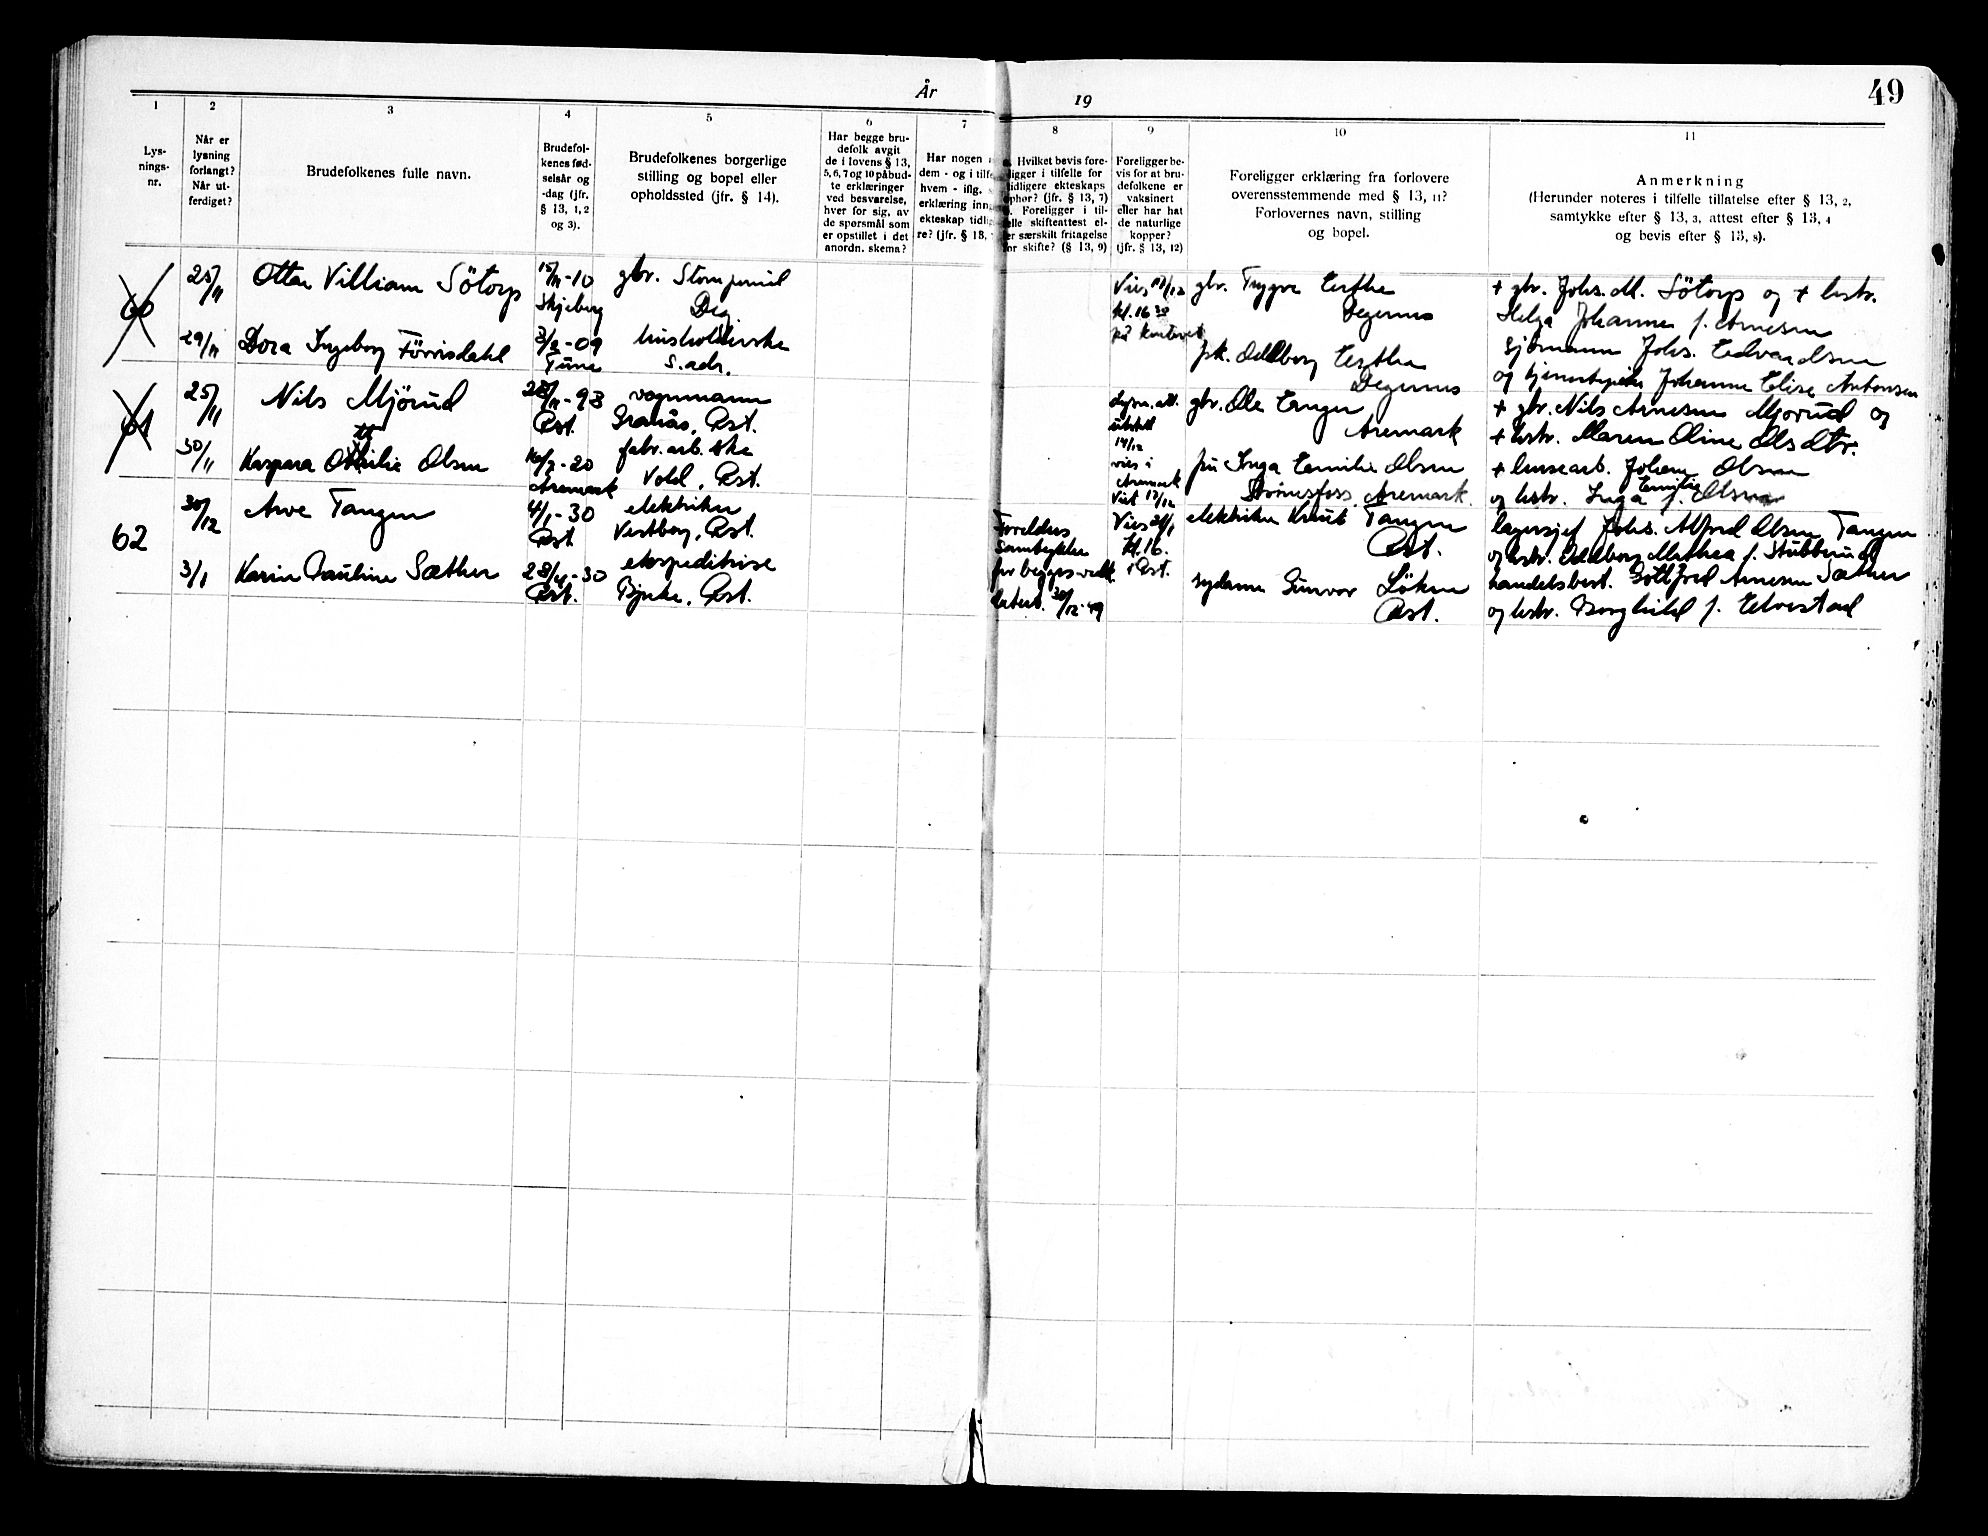 År 19
49
1
Lys-
nings-
nr.
2
Når er
lysning
forlangt?
Når ut-
ferdiget?
3
Brudefolkenes fulle navn.
4
Brudefol-
kenes fød-
selsår og
-dag (jfr.
§ 13, 1, 2
og 3).
5
Brudefolkenes borgerlige
stilling og bopel eller
opholdssted (jfr. § 14).
6
Har begge bru-
defolk avgit
de i lovens § 13,
5, 6, 7 og 10 påbud-
te erklæringer
ved besvarelse,
hver for sig, av
de spørsmål som
er opstillet i det
anordn. skema?
7
Har nogen
dem - og i tilfe
hvem - iflg.
erklæring inng
ekteskap tidli
re? (jfr. § 13,
8
Hvilket bevis fore-
ligger i tilfelle for
tidligere ekteskaps
ophør? (jfr. § 13, 7)
Foreligger i til-
felle skifteattest el-
er særskilt fritagelse
for skifte? (§ 13, 9)
9
Foreligger be-
vis for at bru-
defolkene er
vaksinert
eller har hat
de naturlige
kopper?
(jfr. § 13, 12)
10
Foreligger erklæring fra forlovere
overensstemmende med § 13, 11?
Forlovernes navn, stilling
og bopel.
11
Anmerkning
(Herunder noteres i tilfelle tillatelse efter § 13, 2,
samtykke efter § 13, 3, attest efter § 13, 4
og bevis efter § 13, 8).
60
25/11
Otto Villiam Sötorp
15/11-10
Skjeberg
gbr.
Deg.
Vies 17/12
kl. 16 30
på kontoret
gbr. Trygve Ertha
Degernes
+ gbr. Johs. M. Sötorp og + hstr.
Helga Johanne f. Arnesen
29/11
Dora Ingeborg Förrisdahl
3/2-09
Tune
husholderske
s. adr.
fru Oddborg Ertha
Degernes
sjömann Johs. Edvardsen
og tjenestepike Johanne Elise Antonsen
61
25/11
Nils Mjörud
28/11-93
Rst.
vognmann
Granås, Rst.
utsted
14/12
vies i
Aremark
Viet 17/12
gbr. Ole Enger
Aremark
+ gbr. Nils Arnesen Mjorud og
+ hstr. Maren Oline Olsdtr.
30/11
Kaspara Othilie Olsen
16/7-20
Aremark
fabr. arb.ske
Vold, Rst.
fru Inga Emilie Olsen
Strömsfoss, Aremark.
+ husarb. Johan Olsen
og hstr. Inga Emilie f. Olsen
62
30/12
Arve Tangen
4/1-30
Rst.
elektriker
Vestborg, Rst.
Foreldres
samtykke
for begges vedk.
datert. 30/12-49
Vies 21/1
kl. 16.
i Rst.
elektriker Knut Tangen
Rst.
lagersjef Johs. Alfred Olsen Tangen
og hstr. Oddborg Mathea f. Stubberud
3/1
Karin Pauline Sæther
28/4-30
Rst.
ekspeditrise
Bjerke, Rst.
sydame Gunvor Löken
Rst.
handelsbest. Gottfred Arnesen Sæther
og hstr. Borghild f. Elvestad